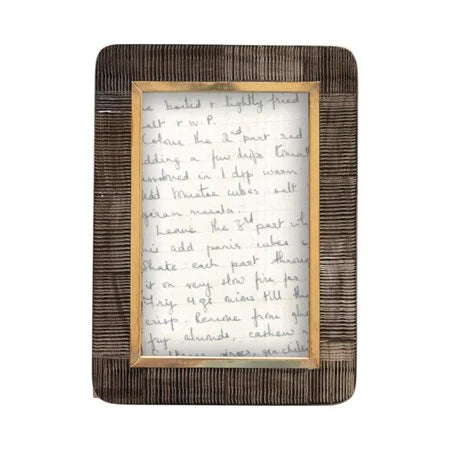 be boiled & lightly fried
salt & W.P.
Colour the 2nd part red
adding a few drips tomat
in 1 dsp warm
add tomatoe cubes salt
garam masala.
Leave the 3rd part wh
add panir cubes
Shake each part throu
it on very slow fire for
Fry 4 gr onions till th
crisp. Remove from gh
fry almonds, cashew n